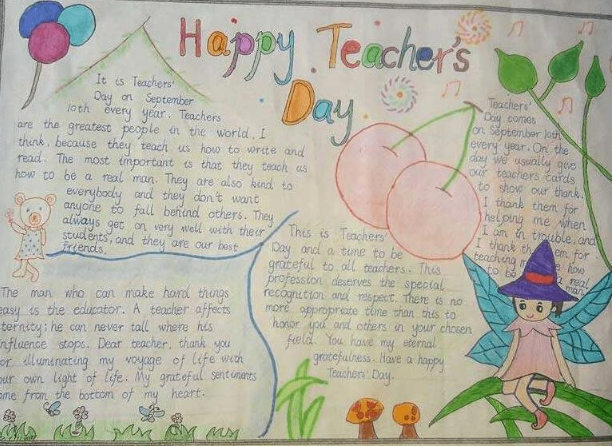 Happy Teacher's
Day
It is Teachers'
Day on September
10th every year. Teachers
are the greatest people in the world, I
think, because they teach us how to write and
read. The most important is that they teach us
how to be a real man. They are also kind to
everybody and they don't want
anyone to fall behind others. They
always get on very well with their
students, and they are our best
friends.
The man who can make hard things
easy is the educator. A teacher affects
ternity: he can never tall where his
nfluence stops. Dear teacher, thank you
or illuminating my voyage of life with
our own light of life. My grateful sentiments
ome from the bottom of my heart.
This is Teachers'
Day and a time to be
grateful to all teachers. This
profession deserves the special
recognition and respect. There is no
more appropriate time than this to
honor you and others in your chosen
field. You have my eternal
gratefulness. Have a happy
Teachers' Day.
Teachers'
Day comes
on September 10th
every year. On the
day we usually give
our teachers cards
to show our thank.
I thank them for
helping me when
I am in trouble, and
I thank them for
teaching me how
to be a real
man.